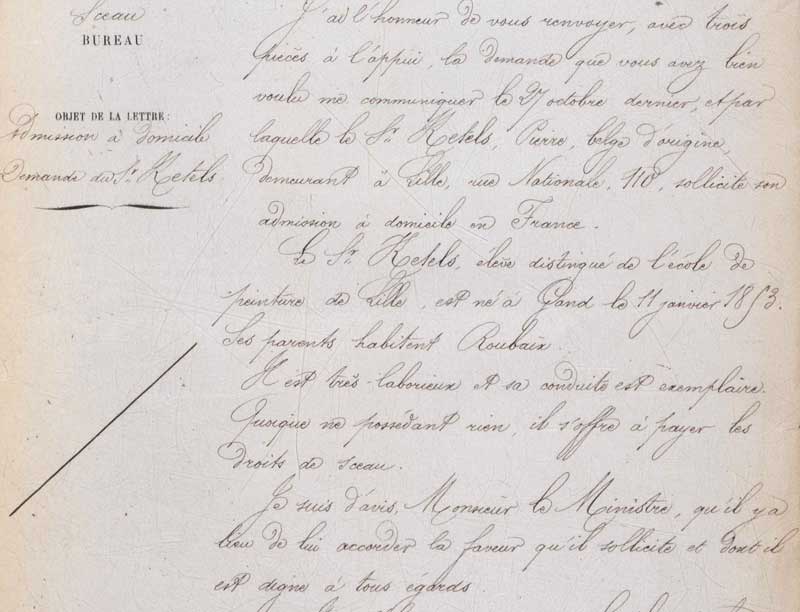 Sceau
BUREAU
OBJET DE LA LETTRE:
Admission à domicile
Demande du Sr. Ketels
J'ai l'honneur de vous renvoyer, avec trois
pièces à l'appui, la demande que vous avez bien
voulu me communiquer le 27 octobre dernier, et par
laquelle le Sr. Ketels, Pierre, belge d'origine,
demeurant à Lille, rue Nationale, 110, sollicite son
admission à domicile en France.
Le Sr. Ketels, élève distingué de l'école de
peinture de Lille, est né à Gand le 11 janvier 1853.
Ses parents habitent Roubaix.
Il est très-laborieux et sa conduite est exemplaire.
Quoique ne possédant rien, il s'offre à payer les
droits de sceau.
Je suis d'avis, Monsieur le Ministre, qu'il y a
lieu de lui accorder la faveur qu'il sollicite et dont il
est digne à tous égards.